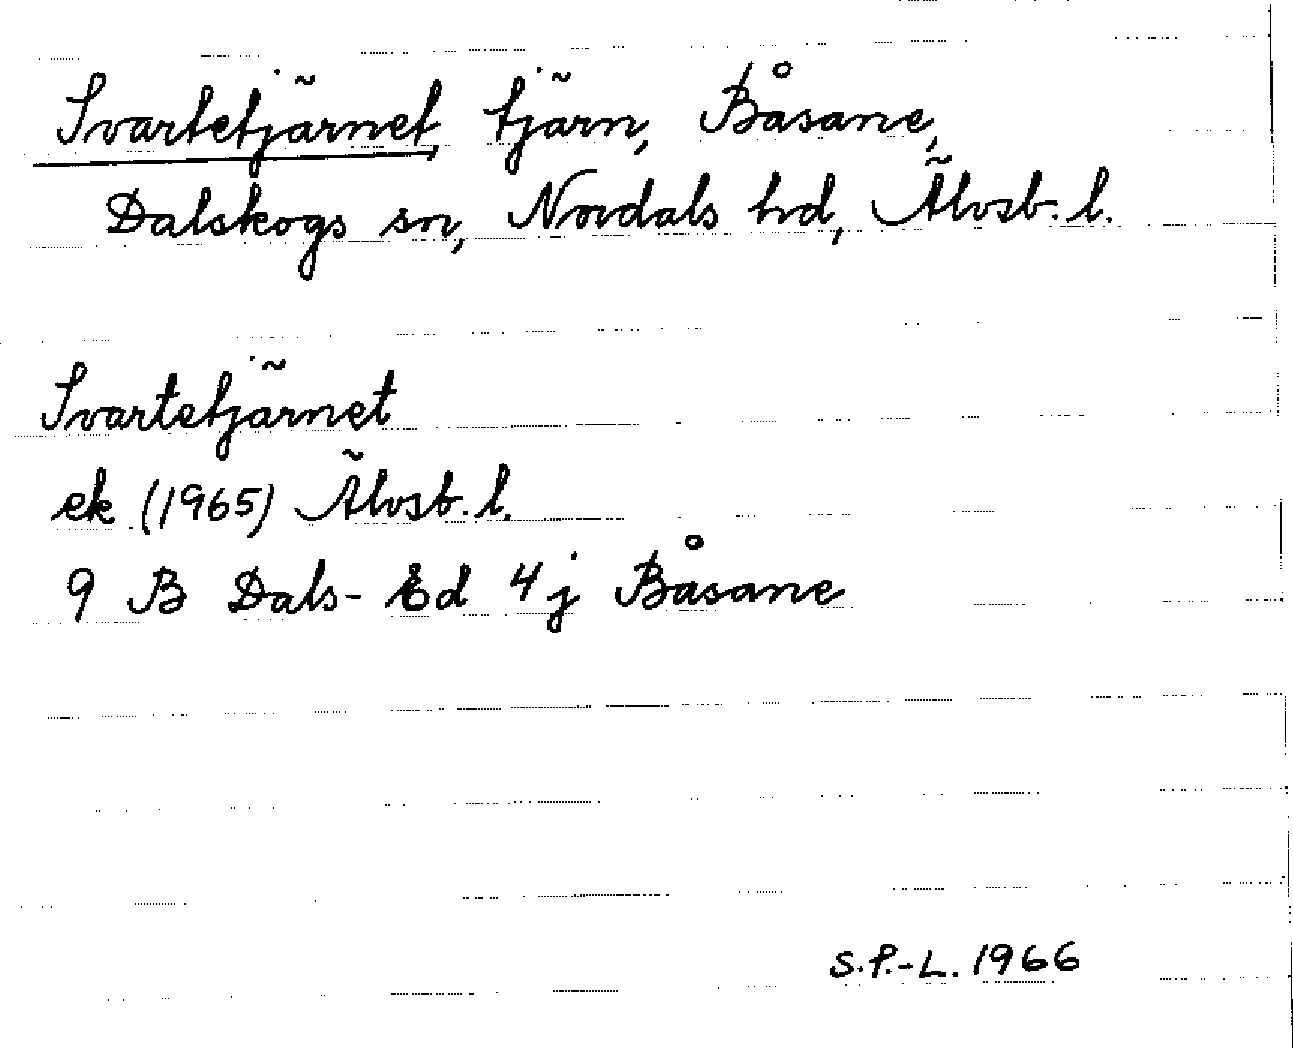 Svartetjärnet, tjärn, Båsane,
Dalskogs sn, Nordals hd, Älvsb. l.
Svartetjärnet
ek (1965) Älvsb. l.
9 B Dals-Ed 4 j Båsane
S.P.-L. 1966